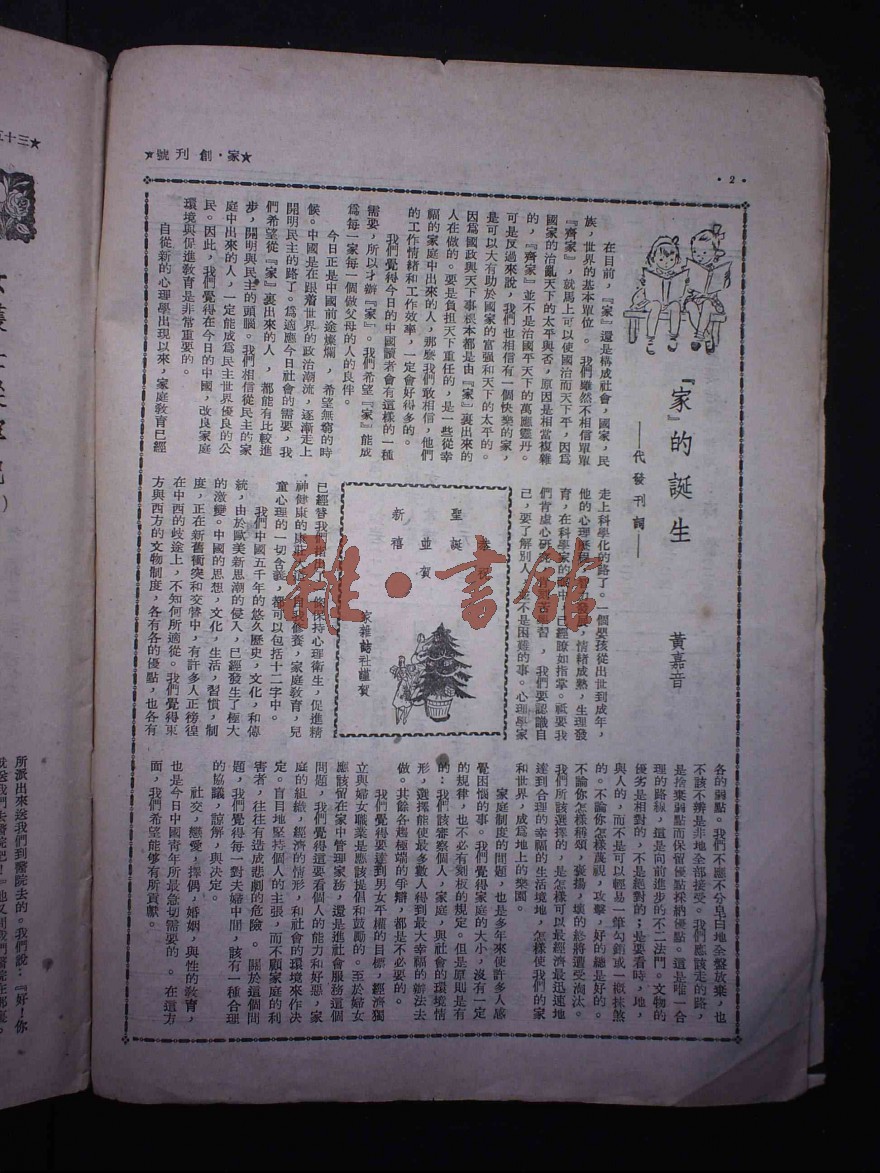 ★家・創刊號★
・2・
『家』的誕生
——代發刊詞——
黃嘉音
在目前，『家』還是構成社會，國家，民
族，世界的基本單位。我們雖然不相信單單
『齊家』，就馬上可以使國治而天下平，因爲
國家的治亂天下的太平與否，原因是相當複雜
的，『齊家』並不是治國平天下的萬應靈丹。
可是反過來說，我們也相信有一個快樂的家，
是可以大有助於國家的富强和天下的太平的。
因爲國政與天下事根本都是由『家』裏出來的
人在做的。要是負担天下重任的，是一些從幸
福的家庭中出來的人，那麽我們敢相信，他們
的工作情緒和工作效率，一定會好得多的。
我們覺得今日的中國讀者會有這樣的一種
需要，所以才辦『家』。我們希望『家』能成
爲每一家每一個做父母的人的良伴。
今日正是中國前途燦爛，希望無窮的時
候。中國是在跟着世界的政治潮流，逐漸走上
開明民主的路了。爲適應今日社會的需要，我
們希望從『家』裏出來的人，都能有比較進
步，開明與民主的頭腦。我們相信從民主的家
庭中出來的人，一定能成爲民主世界優良的公
民。因此，我們覺得在今日的中國，改良家庭
環境與促進敎育是非常重要的。
自從新的心理學出現以來，家庭敎育已經
走上科學化的路了。一個嬰孩從出世到成年，
他的心理
情緒成熟，生理發
育，在科學家的眼中，已經瞭如指掌。祗要我
們肯虛心研究，
習，我們要認識自
己，要了解別人，
不是困難的事。心理學家
恭祝
聖誕
並賀
新禧
家雜誌社謹賀
已經替我們
保持心理衛生，促進精
神健康的康莊
自我修養，家庭敎育，兒
童心理的一切含義，都可以包括十二字中。
我們中國五千年的悠久歷史，文化，和傳
統，由於歐美新思潮的侵入，已經發生了極大
的激變。中國的思想，文化，生活，習慣，制
度，正在新舊衝突和交替中，有許多人正徬徨
在中西的歧途上，不知何所適從。我們覺得東
方與西方的文物制度，各有各的優點，也各有
各的弱點。我們不應不分皁白地全盤放棄，也
不該不辨是非地全部接受。我們應該走的路，
是捨棄弱點而保留優點採納優點。這是唯一合
理的路線，這是向前進步的不二法門。文物的
優劣是相對的，不是絕對的；是要看時，地，
與人的，而不是可以輕易一筆勾銷或一概抹煞
的。不論你怎樣蔑視，攻擊，好的總是好的。
不論你怎樣稱頌，褒揚，壞的終將遭受淘汰。
我們所該選擇的，是怎樣可以最經濟最迅速地
達到合理的幸福的生活境地，怎樣使我們的家
和世界，成爲地上的樂園。
家庭制度的問題，也是多年來使許多人感
覺困惱的事。我們覺得家庭的大小，沒有一定
的規律，也不必有刻板的規定。但是原則是有
的：我們該審察個人，家庭，與社會的環境情
形，選擇能使最多數人得到最大幸福的辦法去
做。其餘各趨極端的爭辯，都是不必要的。
我們覺得要達到男女平權的目標，經濟獨
立與婦女職業是應該提倡和鼓勵的。至於婦女
應該留在家中管理家務，還是進社會服務這個
問題，我們覺得這要看個人的能力和好惡，家
庭的組織，經濟的情形，和社會的環境來作決
定。盲目地堅持個人的主張，而不顧家庭的利
害者，往往有造成悲劇的危險。關於這個問
題，我們覺得每一對夫婦中間，該有一種合理
的協議，諒解，與決定。
社交，戀愛，擇偶，婚姻，與性的敎育，
也是今日中國青年所最急切需要的。在這方
面，我們希望能够有所貢獻。
雜・書館
三十五★
所派出來送我們到醫院去的。我們說：『好！你